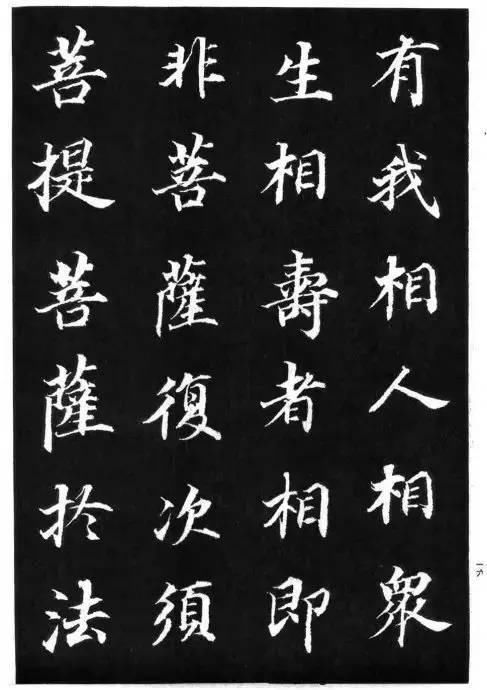 有我相人相眾
生相壽者相即
非菩薩復次須
菩提菩薩於法